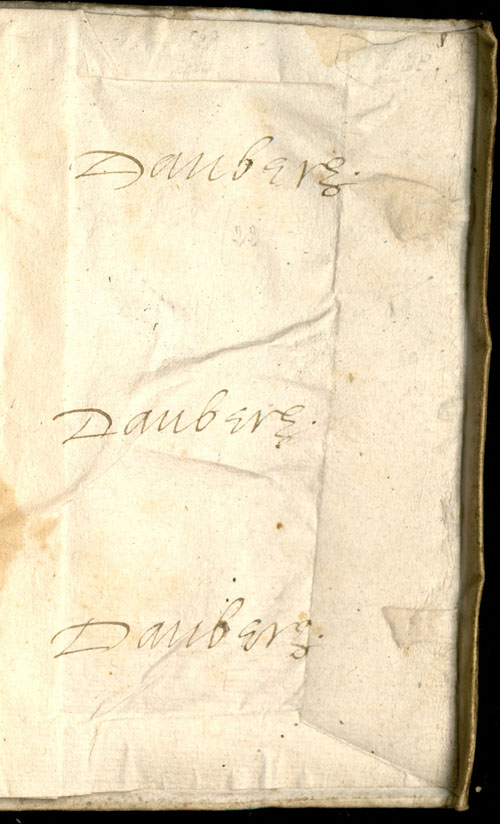 Dauberz.
Dauberz.
Dauberz.